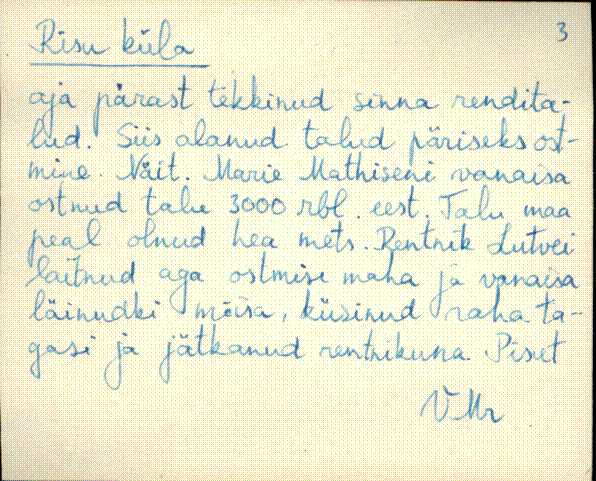 3
Risu küla
aja pärast tekkinud sinna rendita-
lud. Siis alanud talud päriseks ost-
mine. Näit. Marie Mathiseni vanaisa
ostnud talu 3000 rbl. eest. Talu maa
peal olnud hea mets. Rentnik Lutvei
laitnud aga ostmise maha ja vanaisa
läinudki mõisa, küsinud raha ta-
gasi ja jätkanud rentnikuna. Pisut